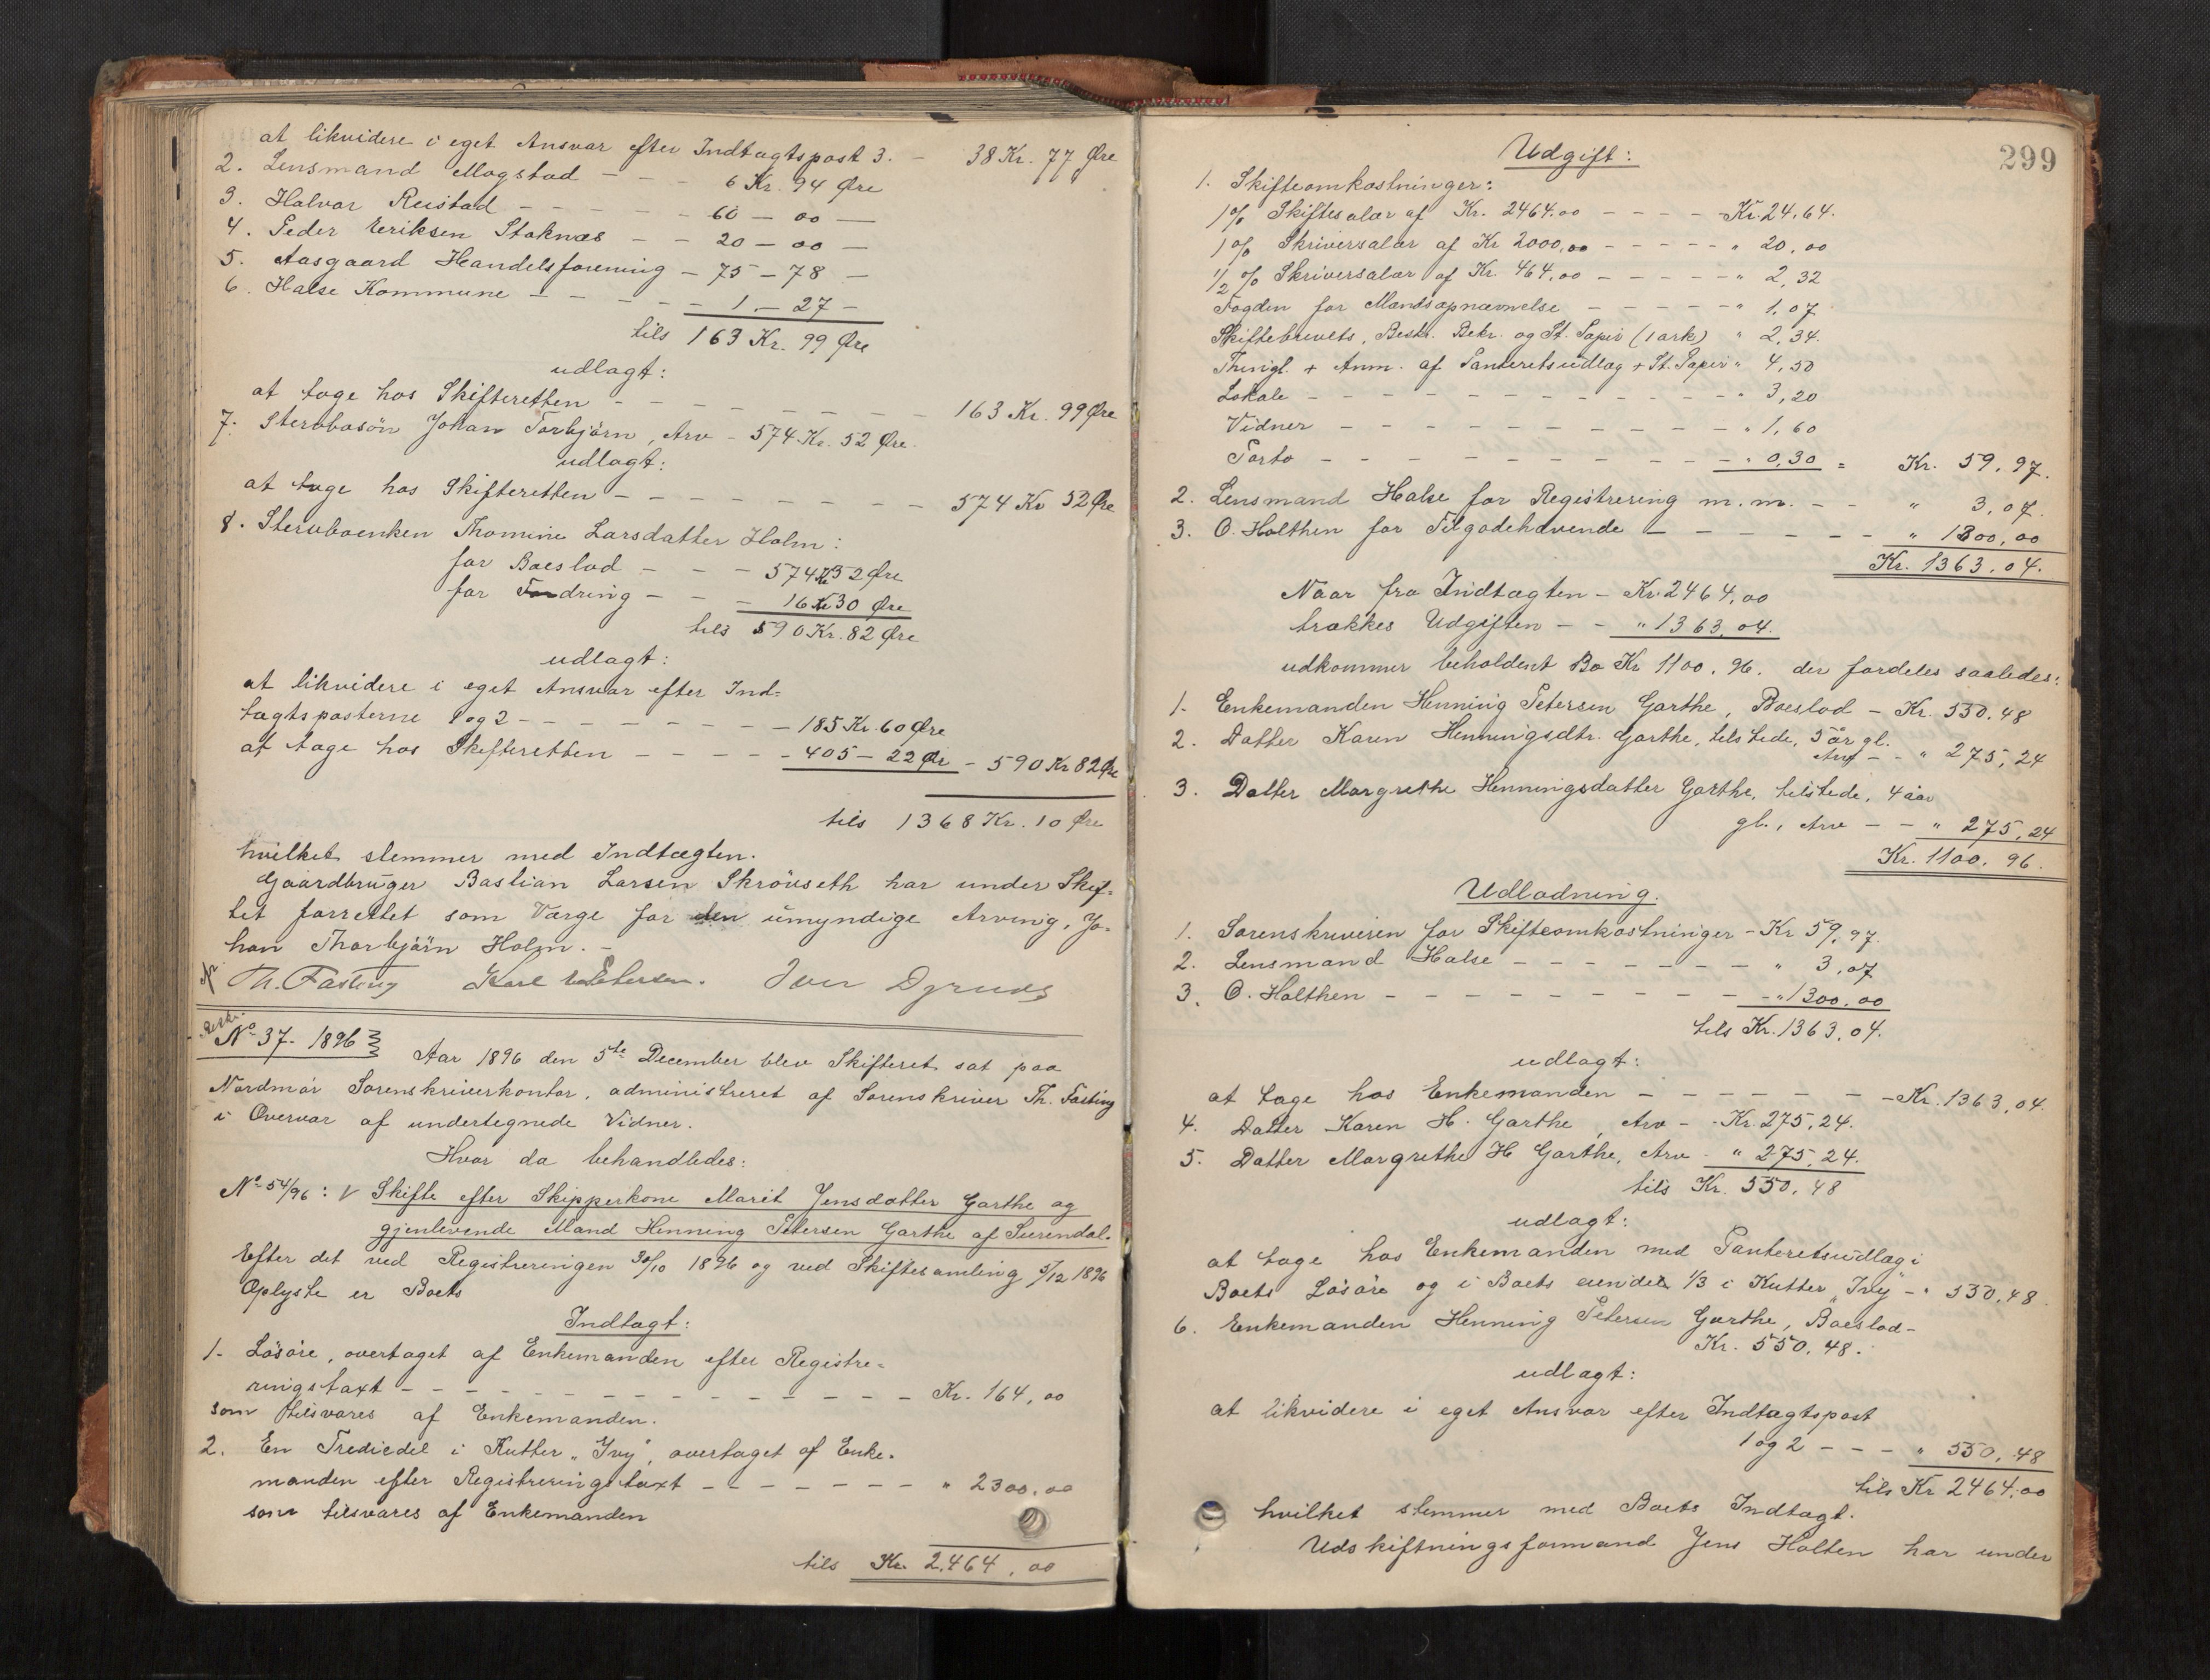 at likvidere i eget Ansvar efter Indtægtspost 3. - 38 Kr. 77 Øre
2. Lensmand Mogstad - - - 6 Kr. 94 Øre
3. Halvor Reistad - - - - - 60 - 00 -
4. Peder Eriksen Stoknæs - - 20 - 00 -
5. Aasgaard Handelsforening - 75 - 78 -
6. Halse Kommune - - - - - 1. - 27 -
tils 163 Kr. 99 Øre
udlagt:
at tage hos Skifteretten - - - - - - - - 163 Kr. 99 Øre
7. Sterbosön Johan Torbjörn, Arv - 574 Kr. 52 Øre.
udlagt:
at tage hos Skifteretten - - - - - - - - 574 Kr 52 Øre
8. Sterboenken Thomine Larsdatter Holm:
for Boeslod - - - 574 Kr 52 Øre
for Fordring - - - 16 Kr 30 Øre
tils 590 Kr. 82 Øre
udlagt:
at likvidere i eget Ansvar efter Ind=
tægtsposterne 1 og 2 - - - - - - - - - 185 Kr. 60 Øre
at tage hos Skifteretten - - - - - 405 - 22 Ør - 590 Kr 82 Øre
tils 1368 Kr. 10 Øre
hvilket stemmer med Indtægten.
Gaardbruger Bastian Larsen Skröveseth har under Skif=
tet forrettet som Værge for den umyndige Arving, Jo-
han Thorbjörn Holm. -
Th. Fasting Karl Petersen. Iver Dyrnes
No 37. 1896
Aar 1896 den 5te December blev Skifteret sat paa
Nordmør Sorenskriverkontor, administreret af Sorenskriver Th. Fasting
i Overvær af undertegnede Vidner.
Hvor da behandledes:
No 54/96: Skifte efter Skipperkone Marit Jensdatter Garthe og
gjenlevende Mand Henning Petersen Garthe af Surendal.
Efter det ved Registreringen 30/10 1896 og ved Skiftesamling 5/12 1896
Oplyste er Boets
Indtægt:
1. Lösöre, overtaget af Enkemanden efter Registre=
ringstaxt - - - - - - - - - - - - - - - - Kr. 164,00
som tilsvares af Enkemanden.
2. En Trediedel i Kutter "Ivy", overtaget af Enke-
manden efter Registreringstaxt - - - - - - - " 2300,00
som tilsvares af Enkemanden
tils Kr. 2,464,00
299
Udgift:
1. Skifteomkostninger:
1% Skiftesalær af Kr. 2464.00 - - - - - Kr. 24,64.
1% Skriversalær af Kr 2000,00 - - - - - " 20,00
1/2 % Skriversalær af Kr. 464,00 - - - - - " 2,32
Fogden for Mandsopnævnelse - - - - - " 1,07
Skiftebrevets, Beskr. Bekr. og St. Papir (1 ark) " 2,34.
Thingl. + Anm. af Panteretsudlæg + St. Papir " 4,50
Lokale - - - - - - - - - - - - - " 3,20
Vidner - - - - - - - - - - - - " 1,60
Porto - - - - - - - - - - - - " 0,30 = Kr. 59,97.
2. Lensmand Halse for Registrering m.m. - - " 3,07.
3. O. Holthen for Tilgodehavende - - - - - - " 1300,00
Kr. 1363,04.
Naar fra Indtægten - Kr. 2464,00
trækkes Udgiften - - " 1363,04.
udkommer beholdent Bo Kr 1100,96. der fordeles saaledes:
1. Enkemanden Henning Petersen Garthe, Boeslod - Kr. 550,48
2. Datter Karen Henningsdtr. Garthe, tilstede, 5 år gl.
Arv - - " 275,24
3. Datter Margrethe Henningsdatter Garthe, tilstede, 4 aar
gl., Arv - - " 275,24
Kr. 1100,96.
Udlodning.
1. Sorenskriveren for Skifteomkostninger - Kr 59,97.
2. Lensmand Halse - - - - - - - - " 3,07
3. O. Holthen - - - - - - - - - - - " 1300,00
tils Kr. 1363,04.
udlagt:
at tage hos Enkemanden - - - - - - - Kr. 1363,04.
4. Datter Karen H. Garthe, Arv - - Kr. 275,24.
5. Datter Margrethe H Garthe, Arv - " 275,24.
tils Kr. 550,48
udlagt:
at tage hos Enkemanden med Panteretsudlæg i
Boets Lösöre og i Boets eiendel 1/3 i Kutter "Ivy" - " 550,48
6. Enkemanden Henning Petersen Garthe, Boeslod-
Kr. 550,48.
udlagt:
at likvidere i eget Ansvar efter Indtægtspost
1 og 2 - - - " 550,48
tils Kr 2464,00
hvilket stemmer med Boets Indtægt.
Udskiftningsformand Jens Holten har under